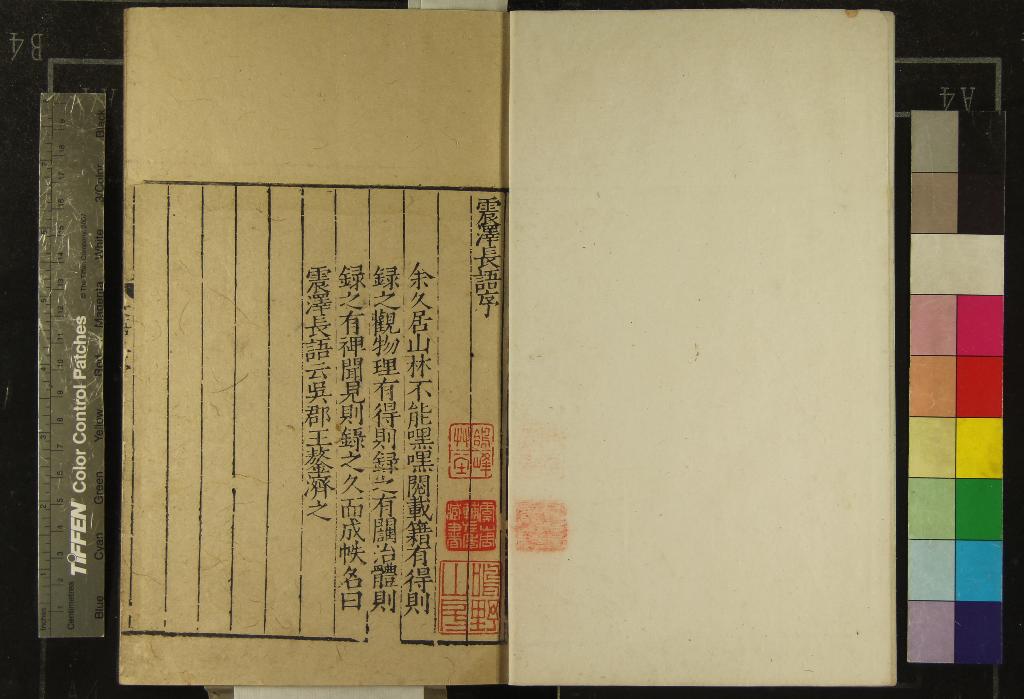 震澤長語序
余久居山林不能嘿嘿閱載籍有得則
録之觀物理有得則録之有關治體則
録之有裨聞見則錄之久而成帙名曰
震澤長語云吳郡王鏊濟之
TIFFEN Color Control Patches
© The Tiffen Company, 2007
Inches
Centimetres
Blue
Cyan
Green
Yellow
Red
Magenta
White
3/Color
Black
B4
A4